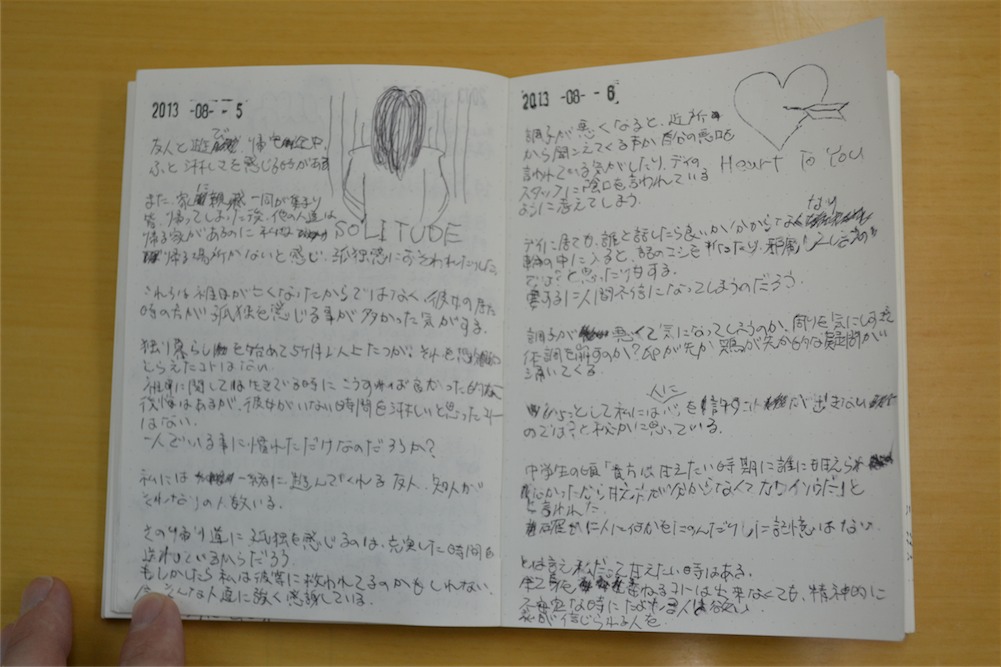 2013 -08- - 5
友人と遊び 帰る途中、
ふと淋しさを感じる時がある
また、家に親戚一同が集まり
皆、帰ってしまった後、他の人達は
帰る家があるのに私は
帰る場所がないと感じ、孤独感におそわれたりした。
SOLITUDE
これらは祖母が亡くなったからではなく、彼女の居た
時の方が孤独を感じる事が多かった気がする。
独り暮らしを始めて5ヶ月以上たつが、それを
とらえたコトはない
祖母に関しては生きている時に こうすれば良かった的な
後悔はあるが、彼女がいない時間を淋しいと思ったコト
はない。
一人でいる事に慣れただけなのだろうか?
私には 一緒に遊んでくれる友人、知人が
それなりの人数いる。
その帰り道に孤独を感じるのは、充実した時間を
送れているからだろう
もしかしたら私は彼等に救われてるのかもしれない
そんな人達に強く感謝している。
2013 -08- - 6
調子が悪くなると、近所
から聞こえてくる声が自分の悪口を
言われている気がしたり、デイの
スタッフに陰口を言われている
ように考えてしまう。
Heart To You
デイに居ても、誰と話したら良いか分からなくなり
輪の中に入ると、話のコシを折ったり、邪魔
では?と思ったりもする。
要するに人間不信になってしまうのだろう
調子が悪くて気になってしまうのか、周りを気にしすぎて
体調を崩すのか?卵が先か 鶏が先か的な疑問が
涌いてくる。
ひょっとして私には人に心を許すコトが出来ない
のでは?と秘かに思っている。
中学生の頃「貴方は甘えたい時期に誰にも甘えられ
なかったから甘え方が分からなくてカワイソウだ」と
言われた
確かに人に何かをたのんだりした記憶はない
とは言え私だって甘えたい時はある。
全てを委ねるには出来なくても、精神的に
不安定な時にたよれる人は欲しい
私が信じられる人を